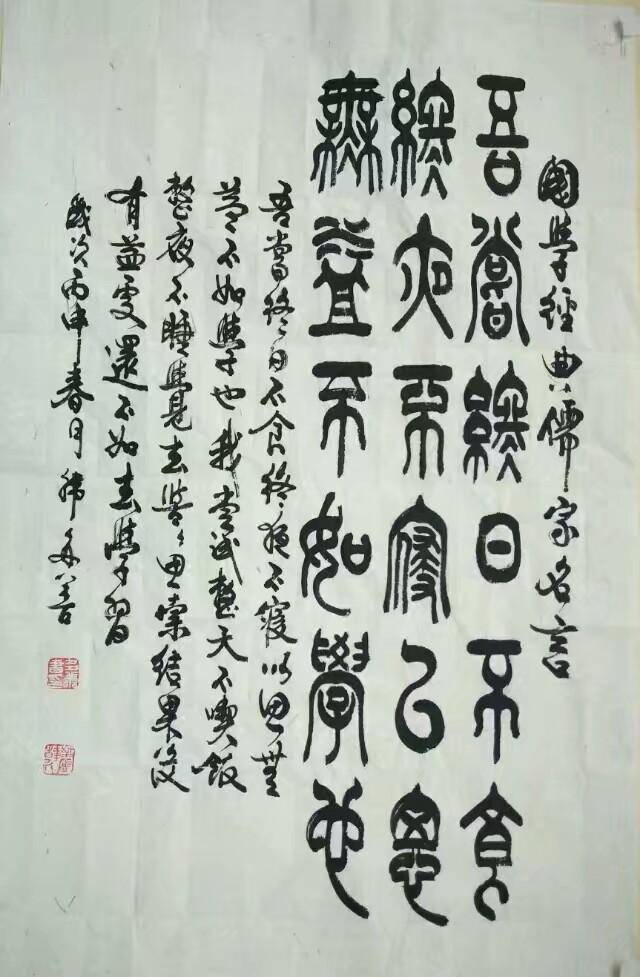 國學經典儒家名言
吾嘗終日不食
終夜不寢以思
無益不如學也
吾嘗終日不食終夜不寢以思無
益不如學也我嘗試整天不喫飯
整夜不睡覺去冥思索結果沒
有益處還不如去學習
歲次丙申春月